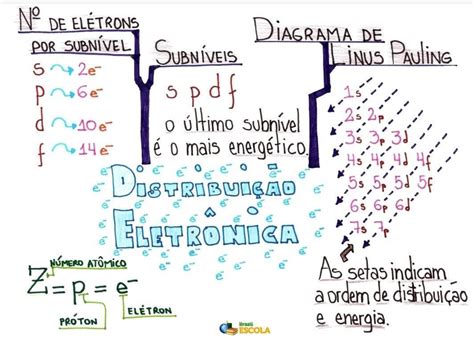 Nº DE ELÉTRONS
POR SUBNÍVEL
s 2e-
p 6e-
d 10e-
f 14e-
SUBNÍVEIS
s p d f
o último subnível
é o mais energético.
DIAGRAMA DE
LINUS PAULING
1s
2s 2p
3s 3p 3d
4s 4p 4d 4f
5s 5p 5d 5f
6s 6p 6d
7s 7p
As setas indicam
a ordem de distribuição
e energia.
DISTRIBUIÇÃO
ELETRÔNICA
e- e- e- e- e- e- e- e- e- e- e- e- e- e- e- e- e- e- e- e-
NÚMERO ATÔMICO
Z=p=e-
PRÓTON
ELÉTRON
Brasil
ESCOLA